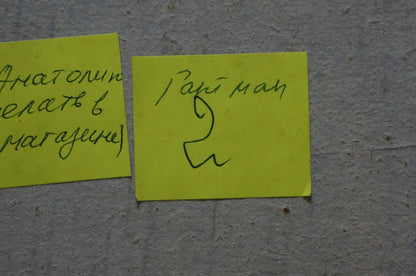 Анатолий
делать в
магазине)
Гантман
2